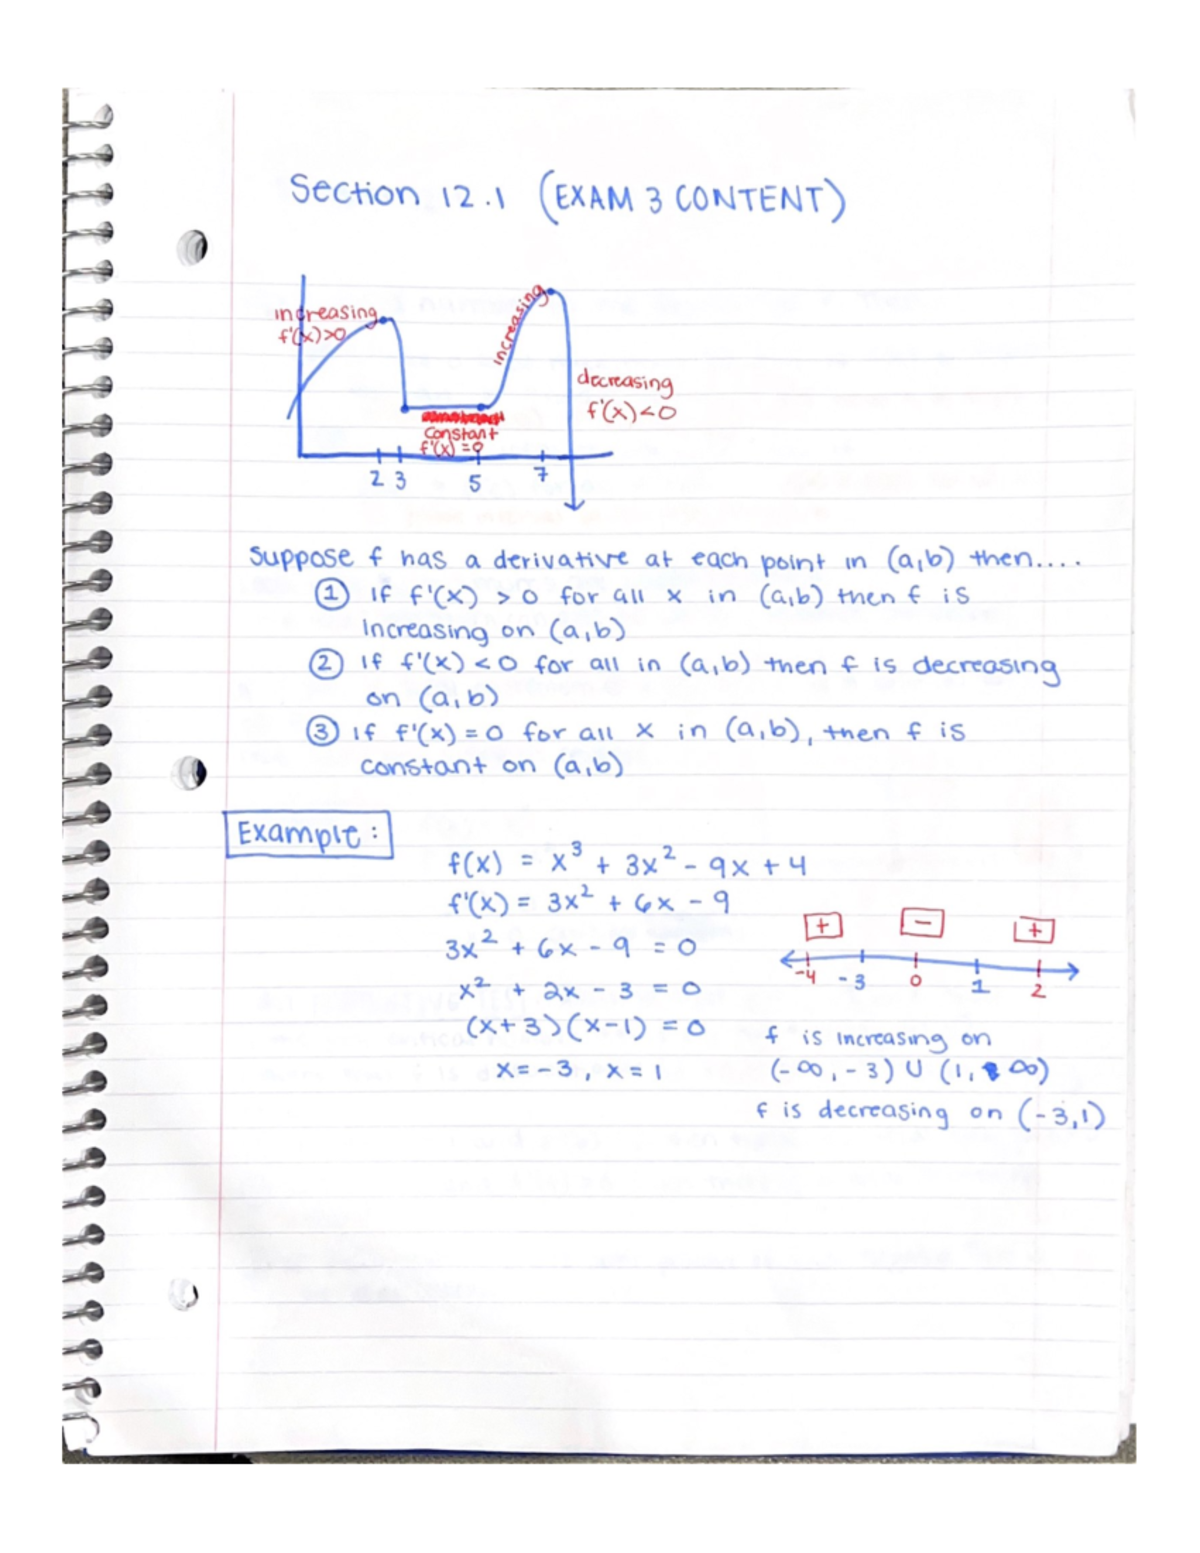 Section 12.1 (EXAM 3 CONTENT)
increasing
f'(x)>0
increasing
decreasing
f'(x)<0
constant
f'(x)=0
2 3 5 7
Suppose f has a derivative at each point in (a,b) then....
① If f'(x) > 0 for all x in (a,b) then f is
increasing on (a,b)
② If f'(x) < 0 for all in (a,b) then f is decreasing
on (a,b)
③ If f'(x) = 0 for all x in (a,b), then f is
constant on (a,b)
Example:
f(x) = x³ + 3x² - 9x + 4
f'(x) = 3x² + 6x - 9
3x² + 6x - 9 = 0
x² + 2x - 3 = 0
(x+3)(x-1) = 0
x = -3, x = 1
+ - +
-4 -3 0 1 2
f is increasing on
(-∞, -3) U (1, ∞)
f is decreasing on (-3,1)